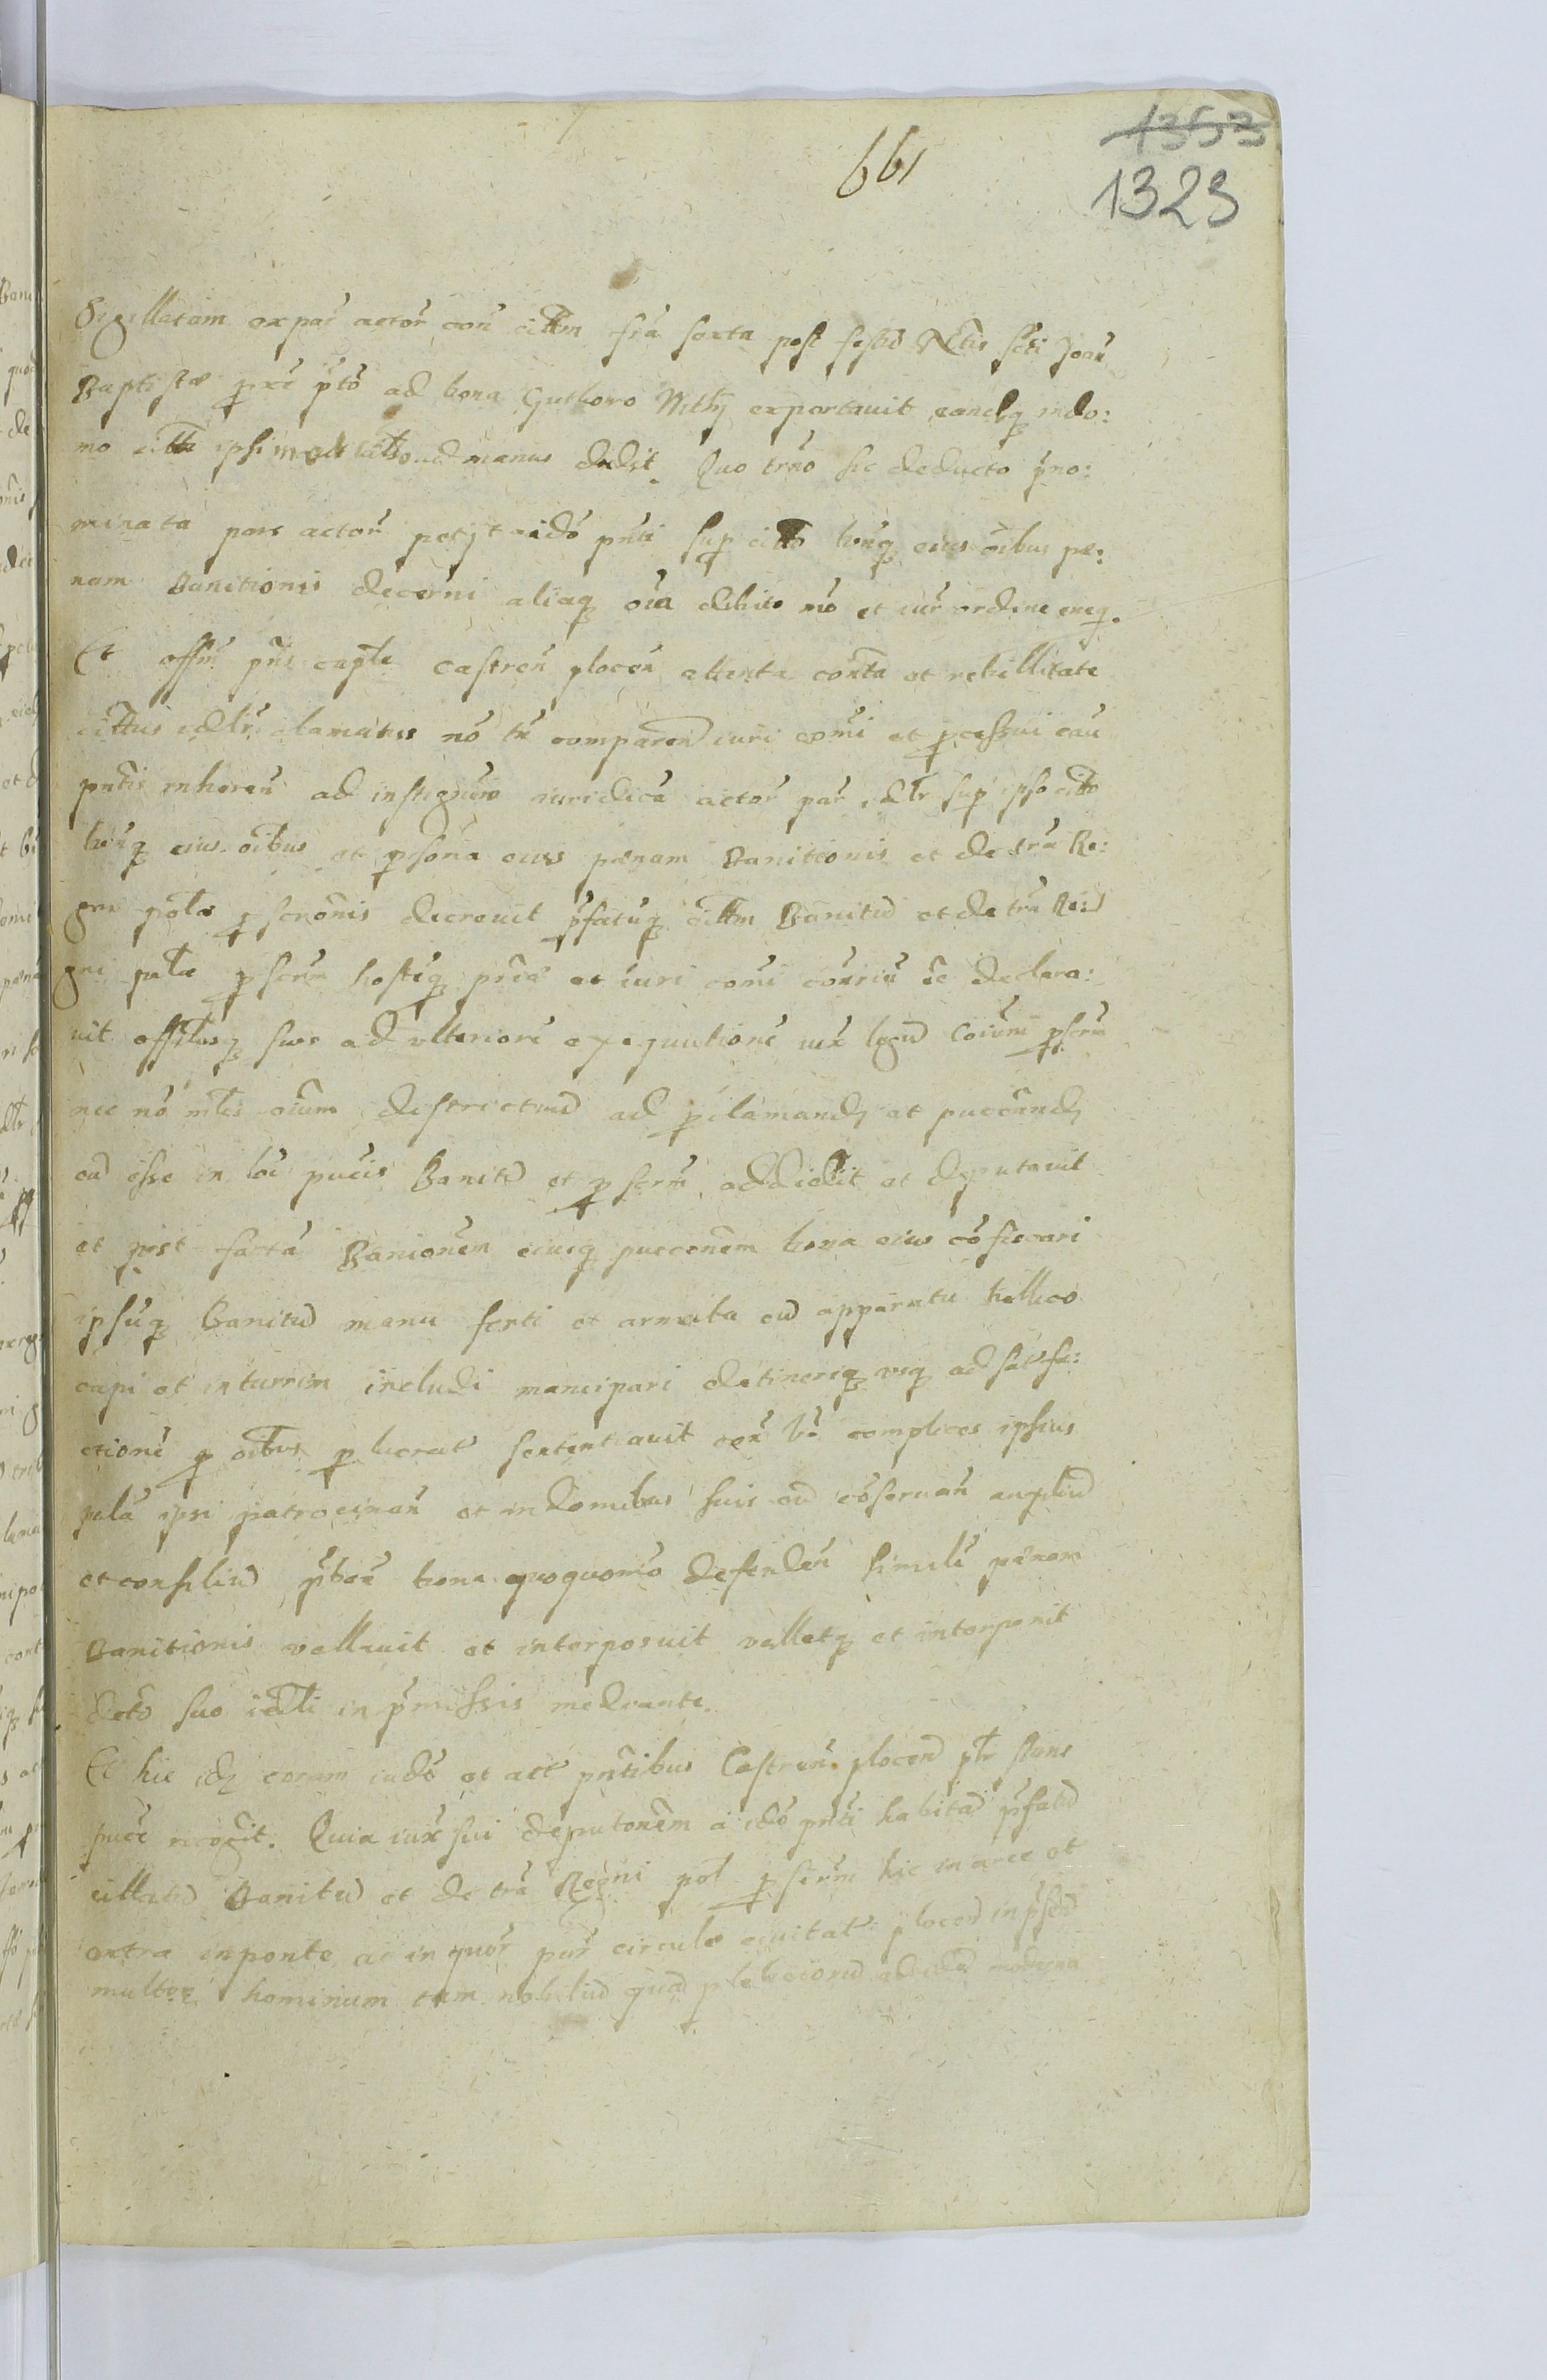 661
1353
1329
Sigillatam ex par actor con citłm fia sexta post festũ Nłtis scti Joañ
Baptistæ prox pto ad bona Guthowo exportavit eandq in do:
mo citti ipsimet ad manus dedit. Quo trno sic deducto pno:
minata pars actoñ petyt a ido pñti sup citto bonq eius oibus pæ:
nam Banitionis decerni aliaq oia debito mo et iur ordine exeq.
Et offm pñs captle castreñ ploceñ attenta contta et rebillitate
cittus idłr clamatus no tñ compareñ iuri comi et pcessui cau
pntis inhereñ ad instigñem iuridica actor par idłr sup ipso citto
bonq eius oibus et psona eius pænam Banitionis et de tra Re:
gni połæ pscriõnis decrevit pfatuq citłm Banitũ et de tra Re:
gni połæ pscrm hosteq priæ et iuri comi conriũ ee declara:
vit officłsq suos ad ulteriorẽ exequutionẽ iux legũ coium pscrm
nec no młes oium districtuũ ad pclamandũ et puccandũ
eũ esse in loc pucis Banitũ et pscrm addidit et deputavit
et post factã Banionẽm eiusq puccõnem bona eius cofiscari
ipsuq Banitũ manu forti et armata cũ apparatu bellico
capi et in turrim includi mancipari detineriq usq ad satisfa:
ctionẽ p oibus p lucrat sententiavit con vo complices ipsius
palã ipsi patrocinañ et in domibus suis eũ coservañ auxiliũ
et consiliũ pbeñ bona quoquomo defendeñ simili pænam
Banitionis vallavit et interposuit vallatq et interponit
dcto suo idłi in pmissis mediante.
Et hic idẽ coram iudo et act pntibus Castreñ. plocen płr stans
pucc recogit. Quia iux sui deputonẽm a ido pñti habitã pfatũ
cittatũ Banitũ et de tra Regni poł pscrm hic in arce et
extra in ponte ac in quor par circulo civitat plocen in psen
multor hominum tam nobiliũ quã plebeiorũ ad idẽ moderna